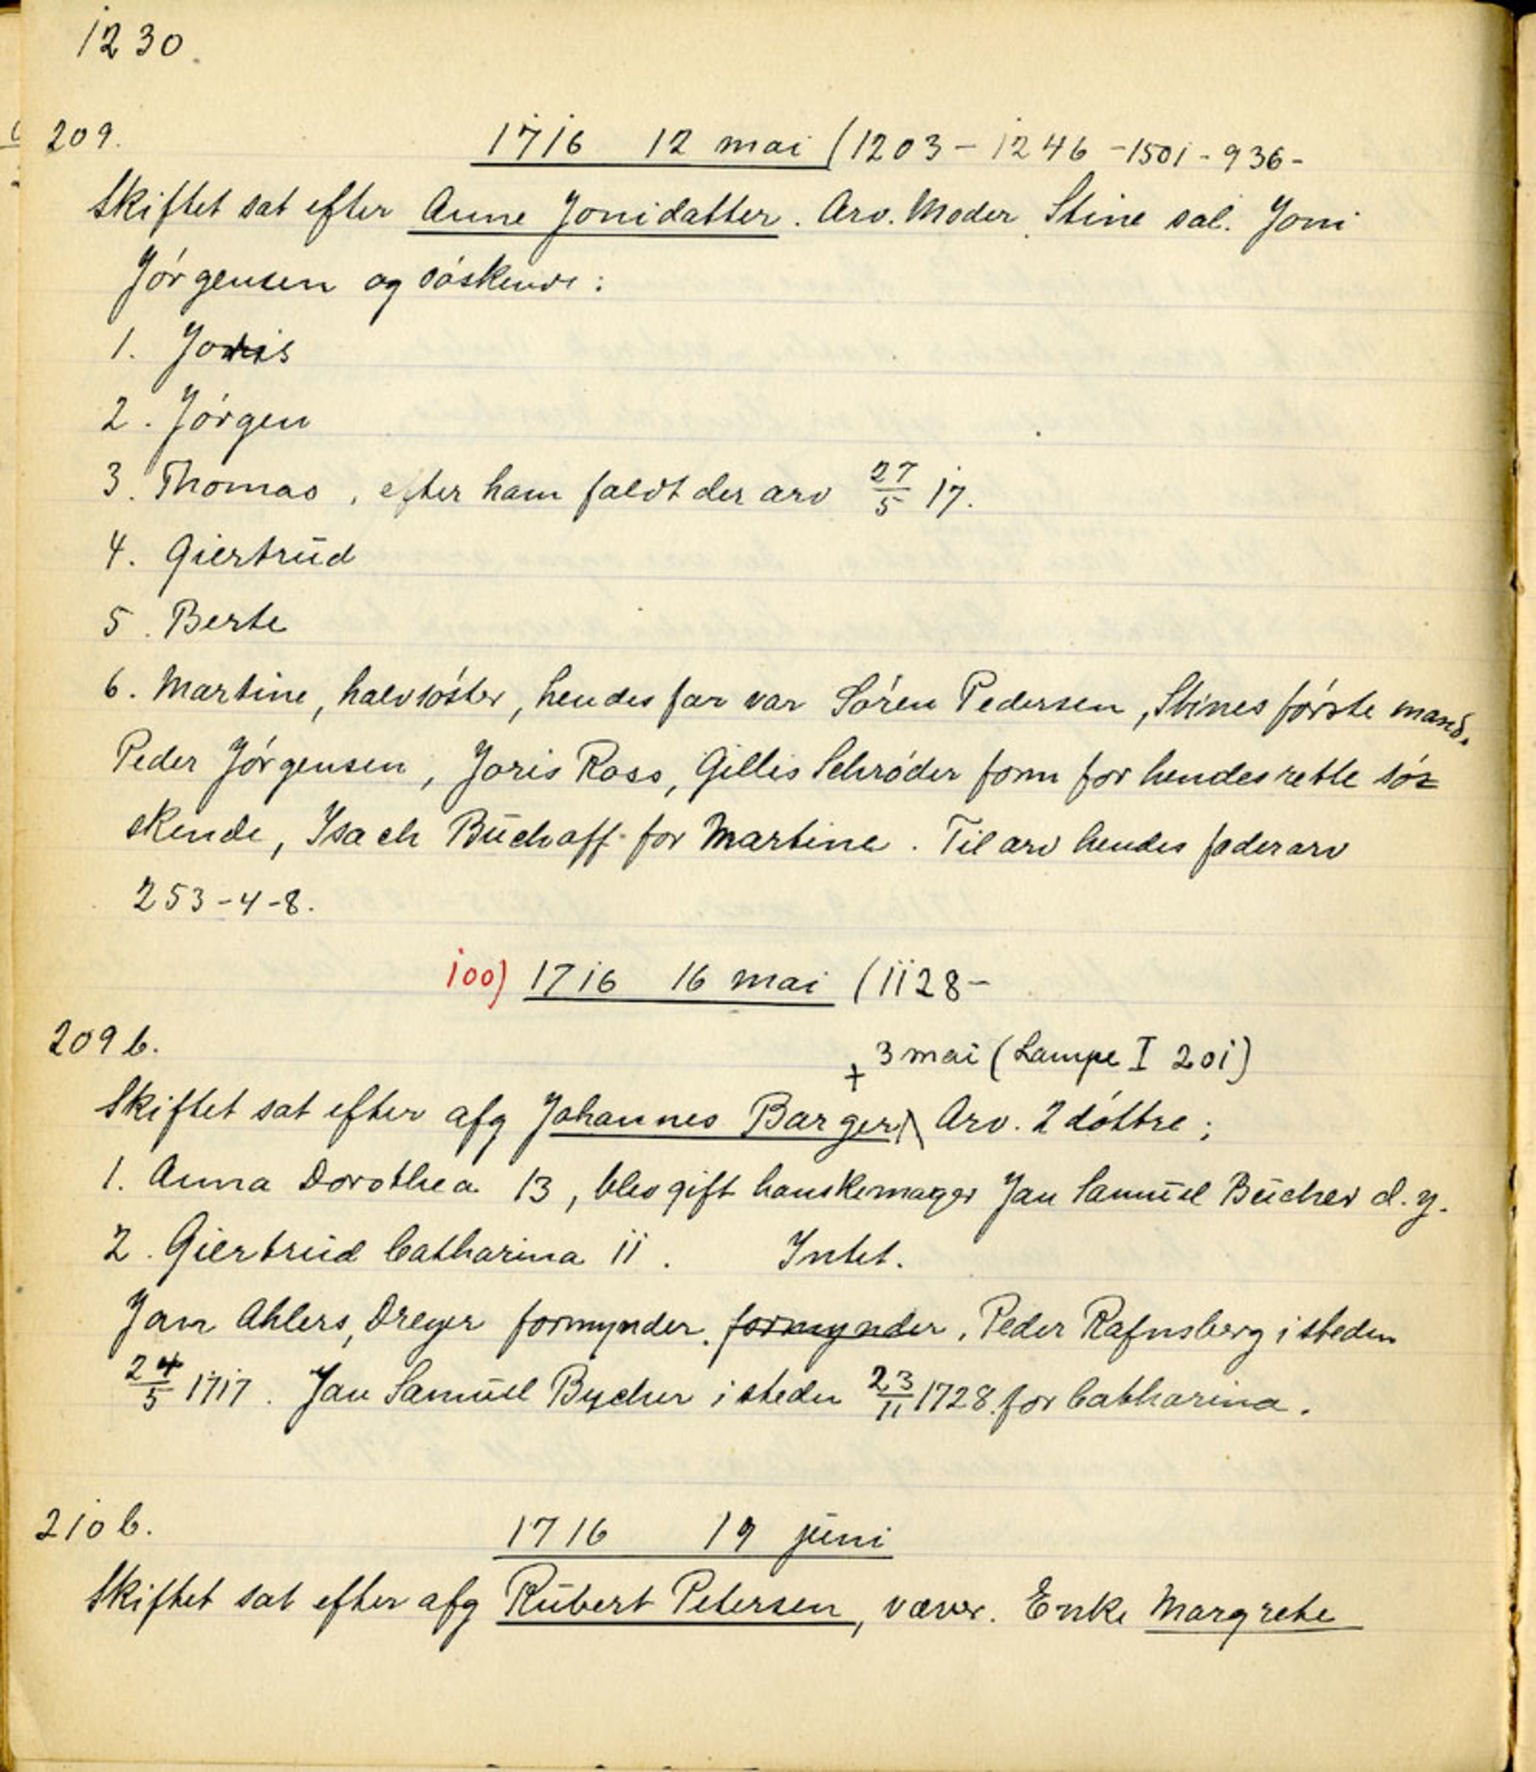 1230.
209.
1716 12 mai (1203 - 1246 - 1501 - 936 -
Skiftet sat efter Anne Jonisdatter. Arv. Moder Stine sal. Joni
Jörgensen og söskende:
1. Joris
2. Jörgen
3. Thomas, efter ham faldt der arv 27/5 17.
4. Giertrud
5. Berte
6. Martine, halvsöster, hendes far var Sören Pedersen, Stines förste mand.
Peder Jörgensen, Joris Ross, Gillis Schröder form for hendes rette sös=
skende, Isach Buchoff for Martine. Til arv hendes faderarv
253-4-8.
100) 1716 16 mai (1128-
209 b.
+ 3 mai (Lampe I 201)
Skiftet sat efter afg Johannes Barger Arv. 2 döttre;
1. Anna Dorothea 13, blev gift hanskemager Jan Samuel Bücher d.y.
2. Giertrud Catharina 11. Intet.
Jan Ahlers, Dreyer formynder, formynder. Peder Rafnsberg isteden
24/5 1717. Jan Samuel Bycher isteden 23/11 1728 for Catharina.
210 b.
1716 19 juni
Skiftet sat efter afg Rubert Petersen, væver. Enke Margrete